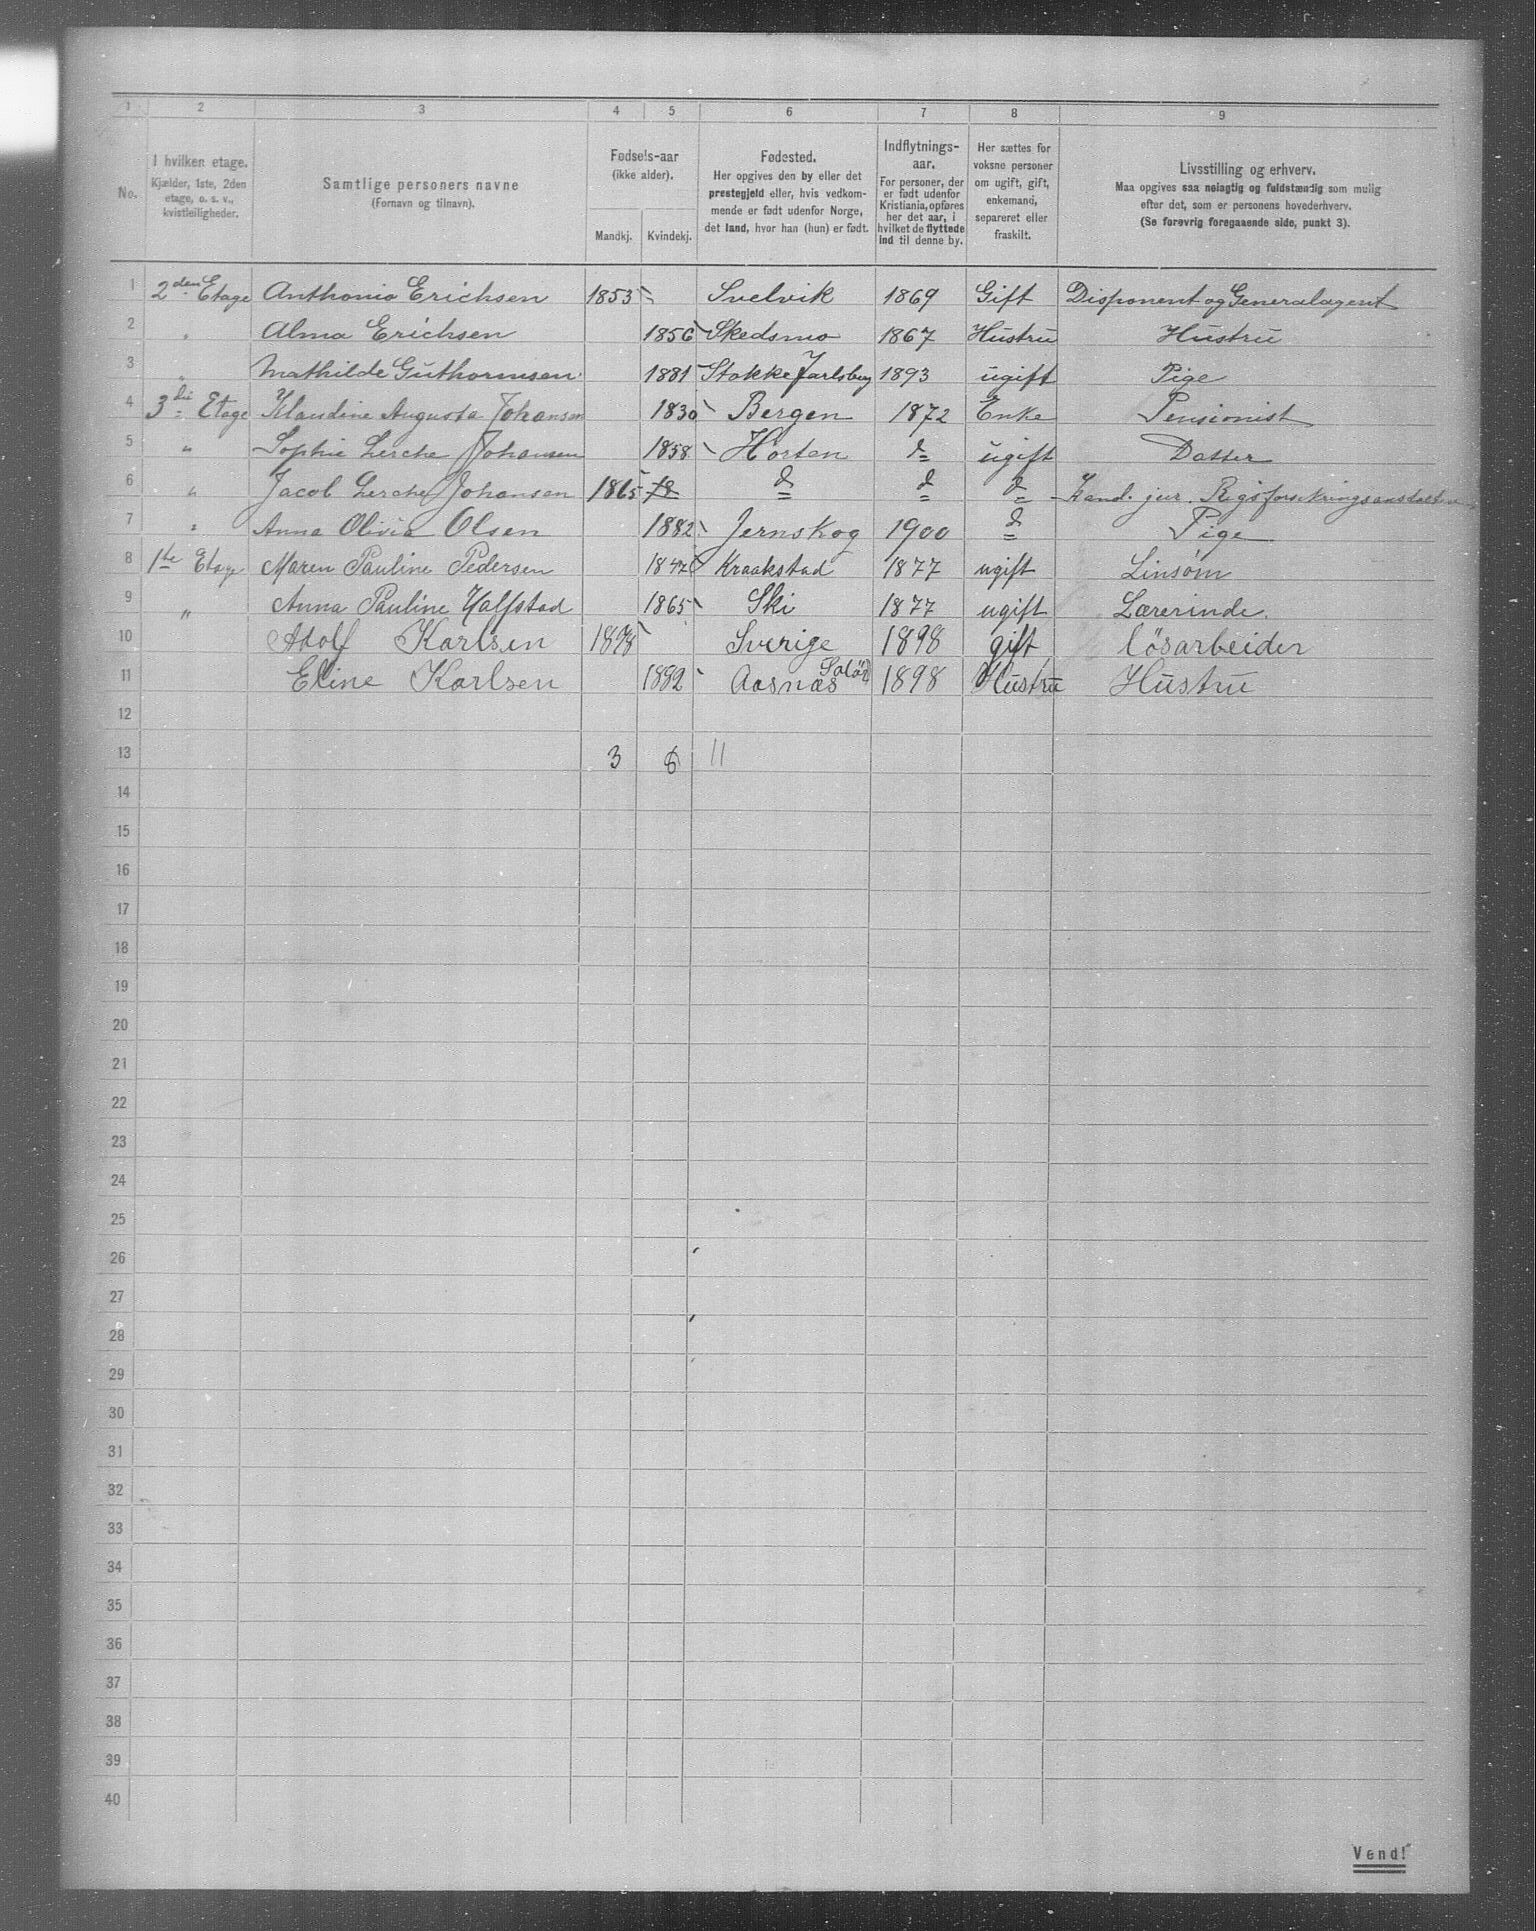 1 2 3 4 5 6 7 8 9
No.
I hvilken etage.
Kjælder, 1ste, 2den
etage, o. s. v.,
kvistleiligheder.
Samtlige personers navne
(Fornavn og tilnavn).
Fødsels-aar
(ikke alder).
Mandkj. Kvindekj.
Fødested.
Her opgives den by eller det
prestegjeld eller, hvis vedkom-
mende er født udenfor Norge,
det land, hvor han (hun) er født.
Indflytnings-
aar.
For personer, der
er født udenfor
Kristiania, opføres
her det aar, i
hvilket de flyttede
ind til denne by.
Her sættes for
voksne personer
om ugift, gift,
enkemand,
separeret eller
fraskilt.
Livsstilling og erhverv.
Maa opgives saa nøiagtig og fuldstændig som mulig
efter det, som er personens hovederhverv.
(Se forøvrig foregaaende side, punkt 3).
1 2den Etage Anthonio Erichsen 1853 Svelvik 1869 Gift Disponent og Generalagent
2 " Alma Erichsen 1856 Skedsmo 1867 Hustru Hustru
3 " Mathilde Guthormsen 1881 Stokke Jarlsberg 1893 ugift Pige
4 3die Etage Klaudine Augusta Johansen 1830 Bergen 1872 Enke Pensionist
5 " Sophie Lerche Johansen 1858 Horten d= ugift Datter
6 " Jacob Lerche Johansen 1865 18 d= d= d= Kand. jur. Rigsforsikringsanstalten
7 " Anna Olivia Olsen 1882 Jernskog 1900 d= Pige
8 1ste Etage Maren Pauline Pedersen Kraakstad 1877 ugift Linsøm
9 " Anna Pauline Halfstad 1865 Ski 1877 ugift Lærerinde.
10 Adolf Karlsen Sverige 1898 gift lösarbeider
11 Eline Karlsen 1882 Aasnæs Solör 1898 Hustru Hustru
12
13 3 8 11
14
15
16
17
18
19
20
21
22
23
24
25
26
27
28
29
30
31
32
33
34
35
36
37
38
39
40
Vend!